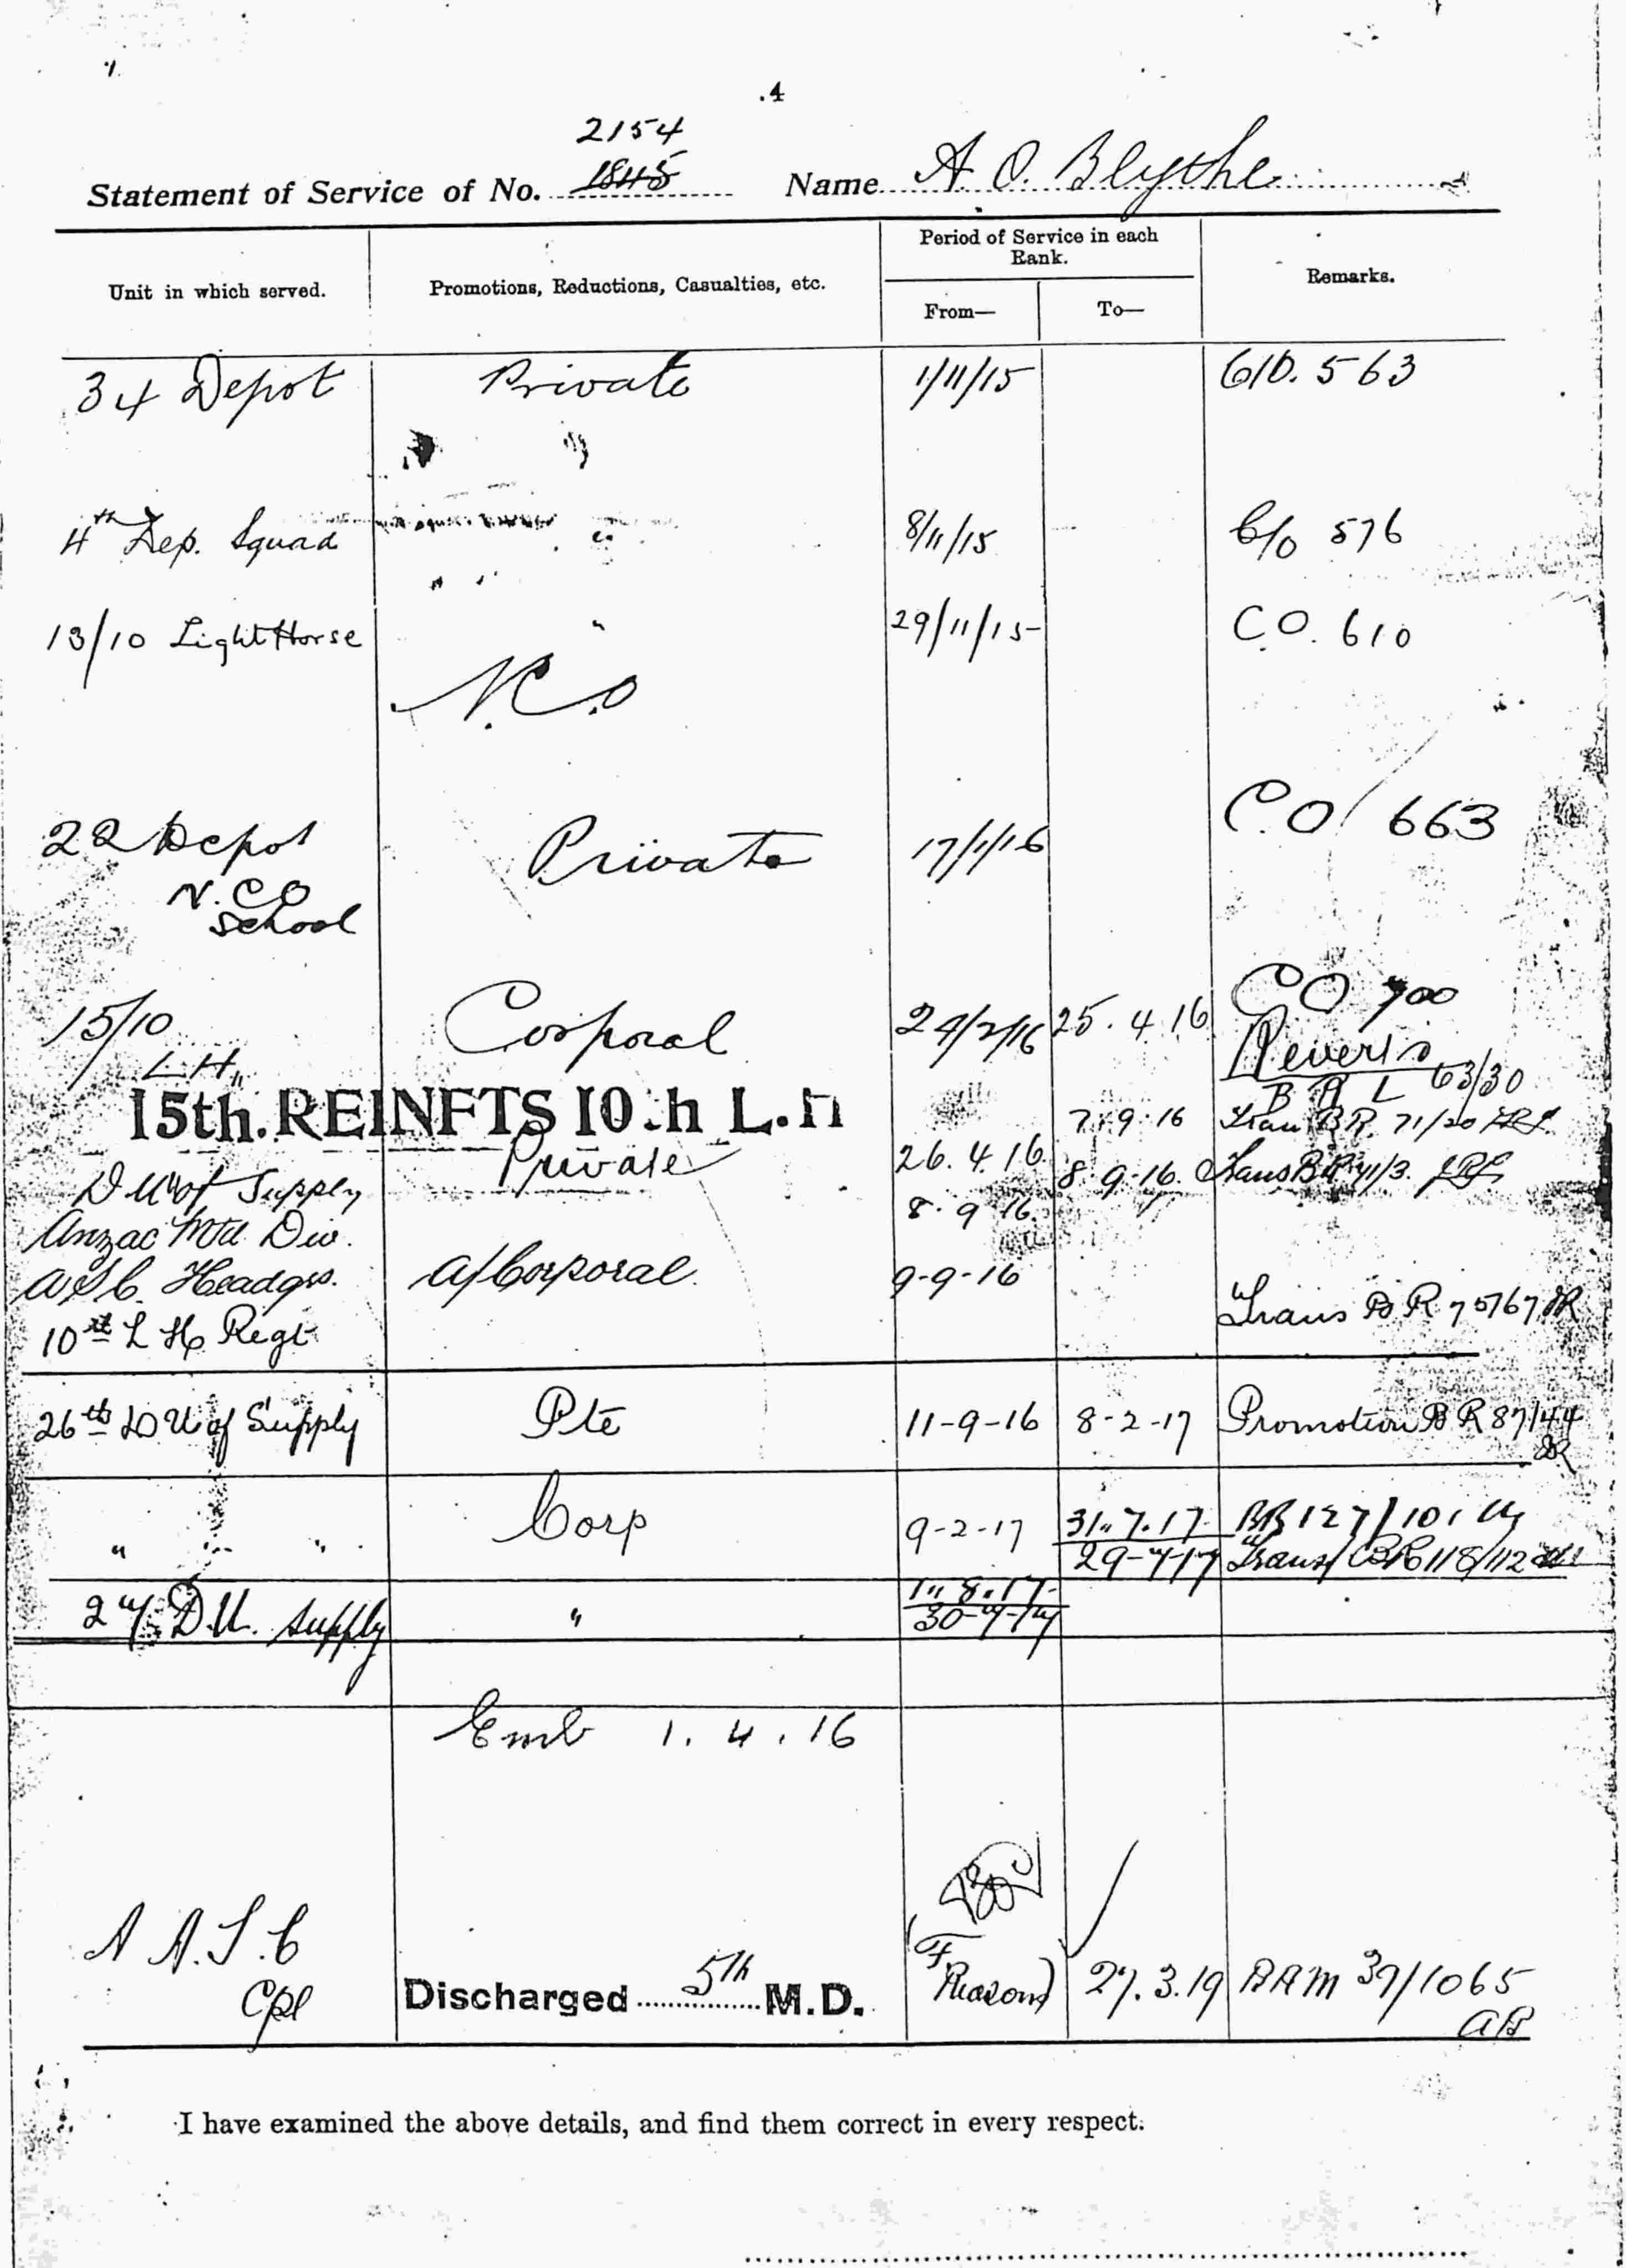 .4
2154
Statement of Service of No. 1845 Name A. O. Blythe
Period of Service in each Rank.
Unit in which served. Promotions, Reductions, Casualties, etc. From— To— Remarks.
34 Depot Private 1/11/15 C/O. 563
4th Dep. Squad " 8/11/15 C/o 576
13/10 Light Horse " 29/11/15 C.O. 610
N.C.O
22 Depot Private 17/1/16 C.O 663
N.C.O
School
15/10 Corporal 24/2/16 25.4.16 CO 700
L.H. Reverts
63/30
15th. REINFTS 10.h L.h 7.9.16 Trans BR. 71/20
Private 26.4.16 8.9.16. Trans BR 71/3.
D U of Supply 8.9.16.
Anzac Mtd. Div.
A S C. Headqrs. A/Corporal 9-9-16
10th L H Regt Trans B R 75/67
26th D U of Supply Pte 11-9-16 8-2-17 Promotion B R 87/44
" " " Corp 9-2-17 31.7.17 BR 127/101
29-7-17 Trans BR 118/112
1.8.17
27 D.U. Supply " 30-7-17
Emb 1.4.16
A A.S.C
Cpl Discharged 5th M.D. 27.3.19 BRM 39/1065
AB
I have examined the above details, and find them correct in every respect.